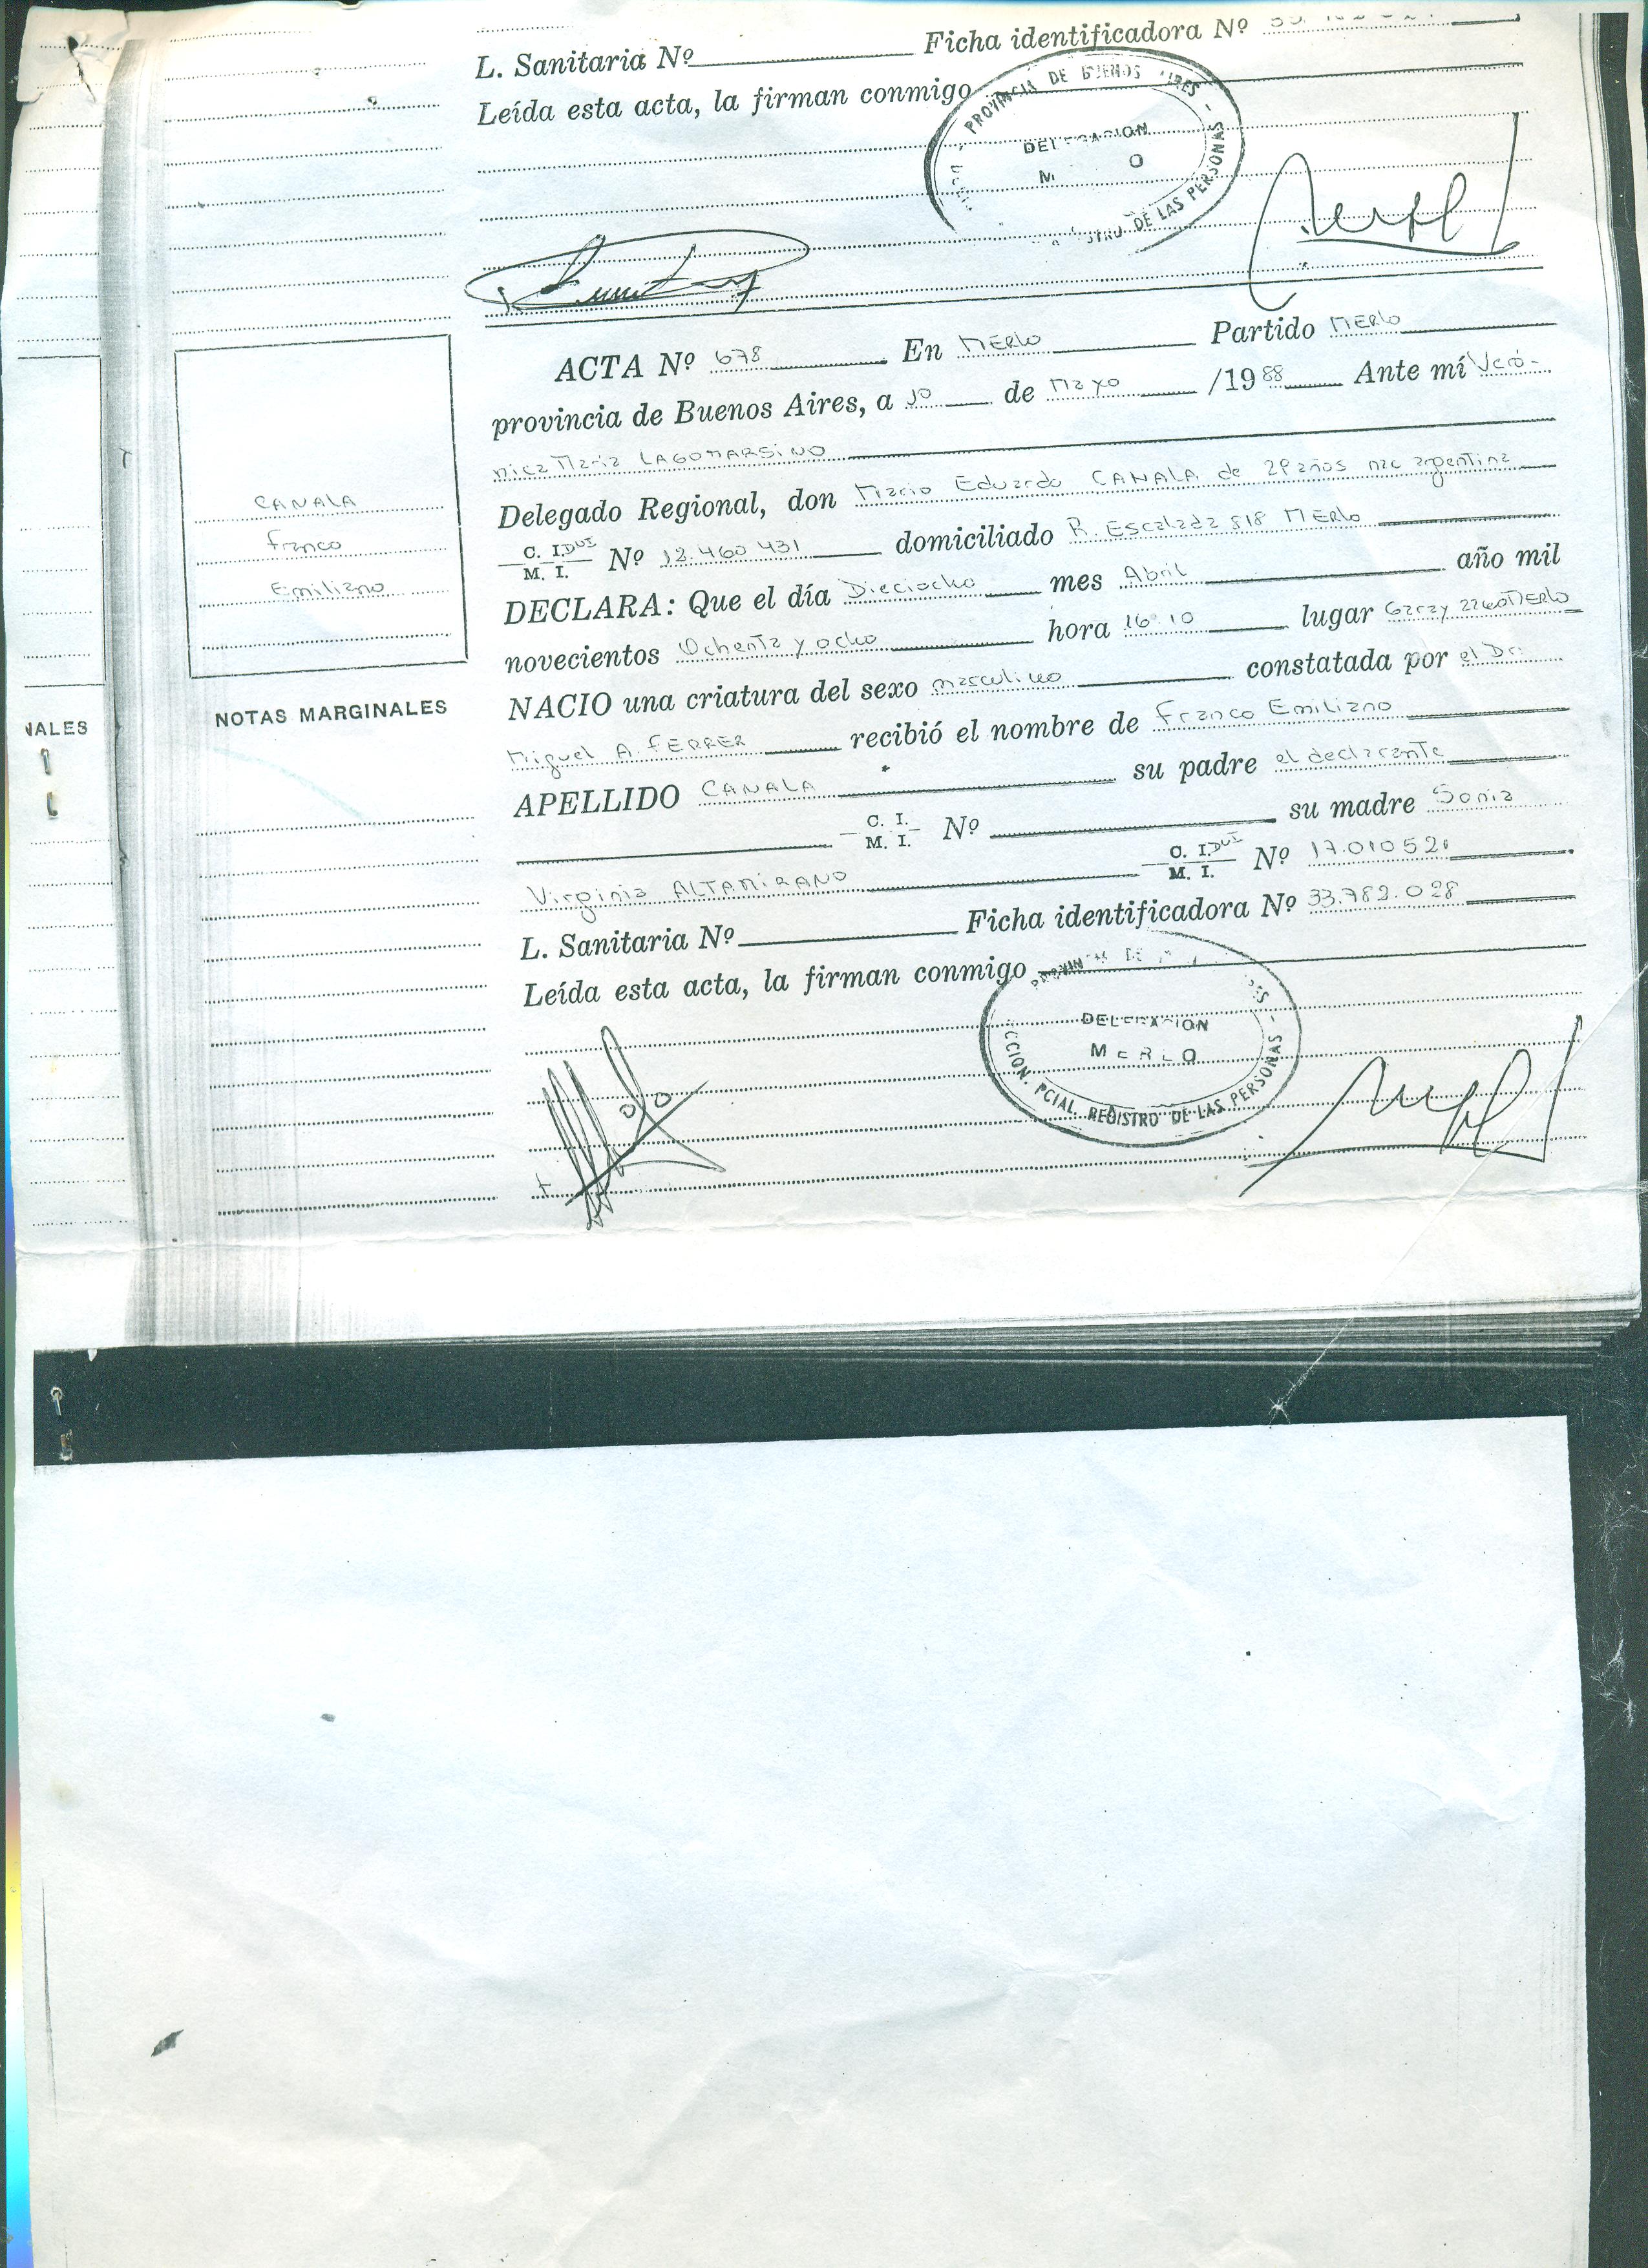 L. Sanitaria Nº Ficha identificadora Nº
Leída esta acta, la firman conmigo
PROVINCIA DE BUENOS AIRES -
DELEGACION
DE LAS PERSONAS
ACTA Nº 678 En MERLO Partido MERLO
provincia de Buenos Aires, a 10 de Mayo /1988 Ante mí Veró-
nica María LAGOMARSINO
Delegado Regional, don Mario Eduardo CANALA de 28 años nac argentina
C. I. DUI
M. I. Nº 12.460.431 domiciliado R. Escalada 818 MERLO
DECLARA: Que el día Dieciocho mes Abril año mil
novecientos Ochenta y ocho hora 16 10 lugar Garay 2260 MERLO
NACIO una criatura del sexo masculino constatada por el Dr.
Miguel A. FERRER recibió el nombre de Franco Emiliano
APELLIDO CANALA su padre el declarante
C. I.
M. I. Nº su madre Sonia
Virginia ALTAMIRANO C. I. DUI
M. I. Nº 17.010.521
L. Sanitaria Nº Ficha identificadora Nº 33.782.028
Leída esta acta, la firman conmigo
DELEGACION
MERLO
CCION. PCIAL. REGISTRO DE LAS PERSONAS -
CANALA
Franco
Emiliano
NOTAS MARGINALES
NALES